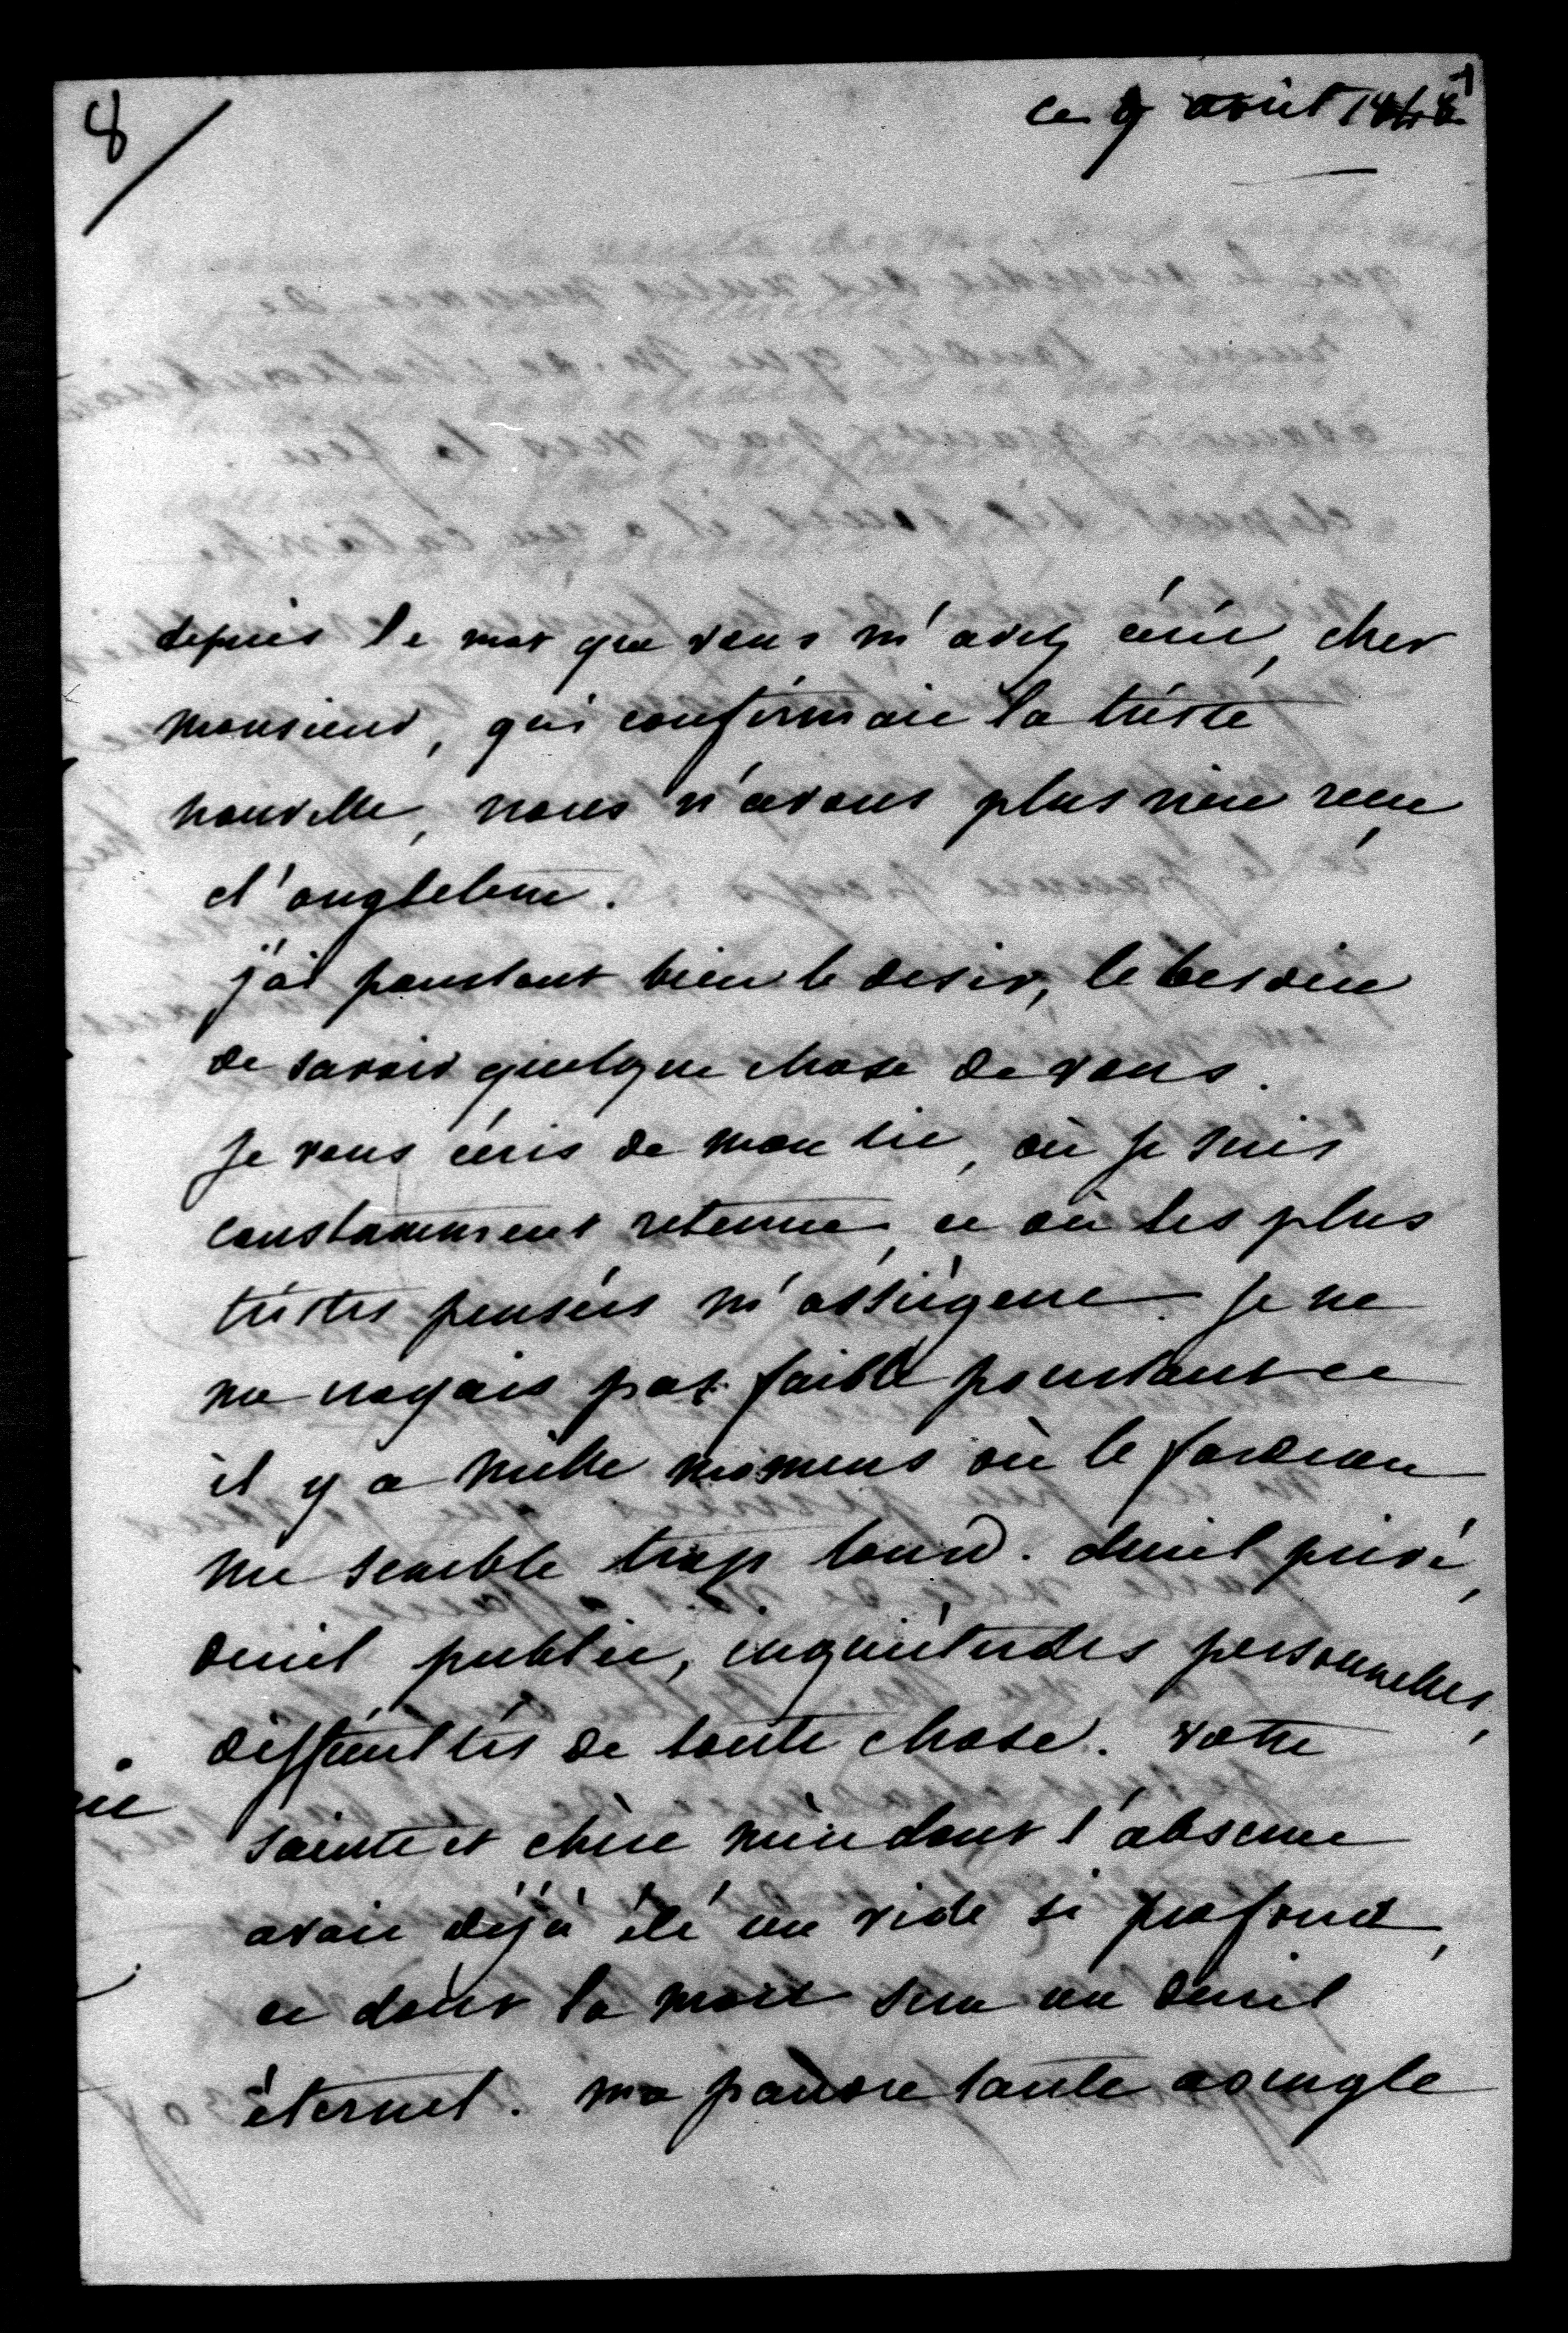 8
ce 9 avril 1848
depuis le mot que vous m'avez écrit, cher
monsieur, qui confirmait la triste
nouvelle, nous n'avons plus rien recu
d'angleterre.
j'ai pourtant bien le desir, le besoin
de savoir quelque chose de vous.
Je vous écris de mon lit, où je suis
constamment retenue, et où les plus
tristes pensées m'assiègent. Je ne
me croyais pas faible pourtant et
il y a mille momens où le fardeau
me semble trop lourd. deuil privé,
deuil public, inquiétudes personnelles,
difficultés de toute chose. votre
sainte et chère mère dont l'absence
avait déjà été un vide si profond,
et dont la mort sera un deuil
éternel. ma pauvre tante aveugle